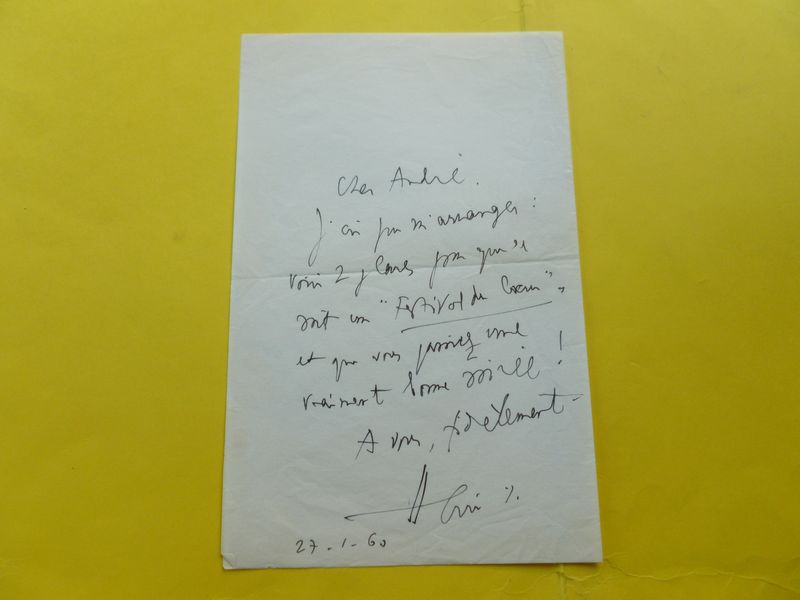 Cher André.
J'ai pu m'arranger :
voici 2 places pour que ce
soit un "Festival du Coeur",
et que vous passiez une
vraiment bonne soirée !
A vous, fidèlement -
27-1-60